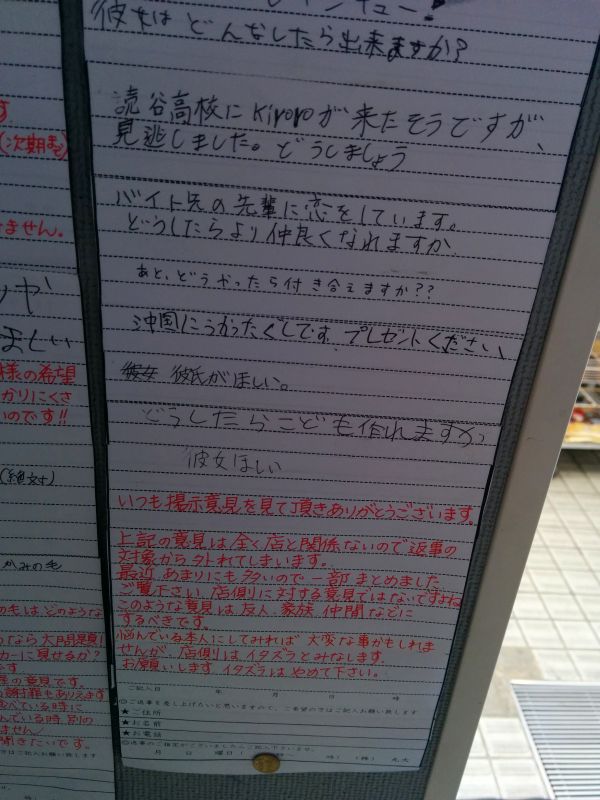 彼女はどんなしたら出来ますか?
読谷高校にkiroroが来たそうですが、
見逃しました。どうしましょう
バイト先の先輩に恋をしています。
どうしたらより仲良くなれますか
あと、どうやったら付き合えますか??
沖国にうかったくしです。プレゼントください、
彼氏がほしい。
どうしたらこども作れますか?
彼女ほしい
いつも掲示意見を見て頂きありがとうございます。
上記の意見は全く店と関係ないので返事の
対象から外れてしまいます。
最近あまりにも多いので一部まとめました
ご覧下さい。店側に対する意見ではないですよね
このような意見は友人、家族、仲間などに
するべきです。
悩んでいる本人にしてみれば大変な事かもしれま
せんが、店側はイタズラとみなします。
お願いします。イタズラはやめて下さい。
ご記入日 年 月 日 時
◎ご返事を差し上げたいと思いますので、ご希望の方はご記入お願い致します
★ご住所
★お名前
★お電話
月 日 曜日(
(次期まで)
ません。
ほしい
様の希望
かりにくさ
いのです!!
(絶対)
かみの毛
の毛は、どのような
産の意見です。
謝罪もありえます
んでいる時、別の
聞きたいです。
はご記入お願い致します